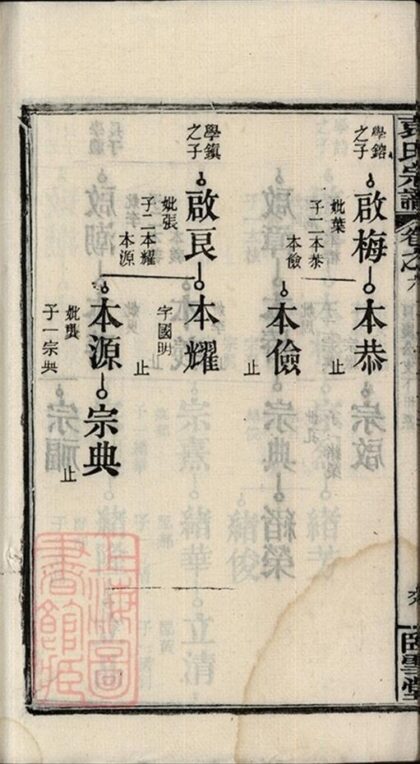 袁氏宗譜
卷之六
臥雲堂
學鎔之子
啟梅
妣葉
子二本恭
本儉
本恭
止
本儉
止
學鎮之子
啟良
妣張
子二本耀
本源
本耀
字國明
止
本源
妣龔
子一宗典
宗典
止
上海圖書館藏